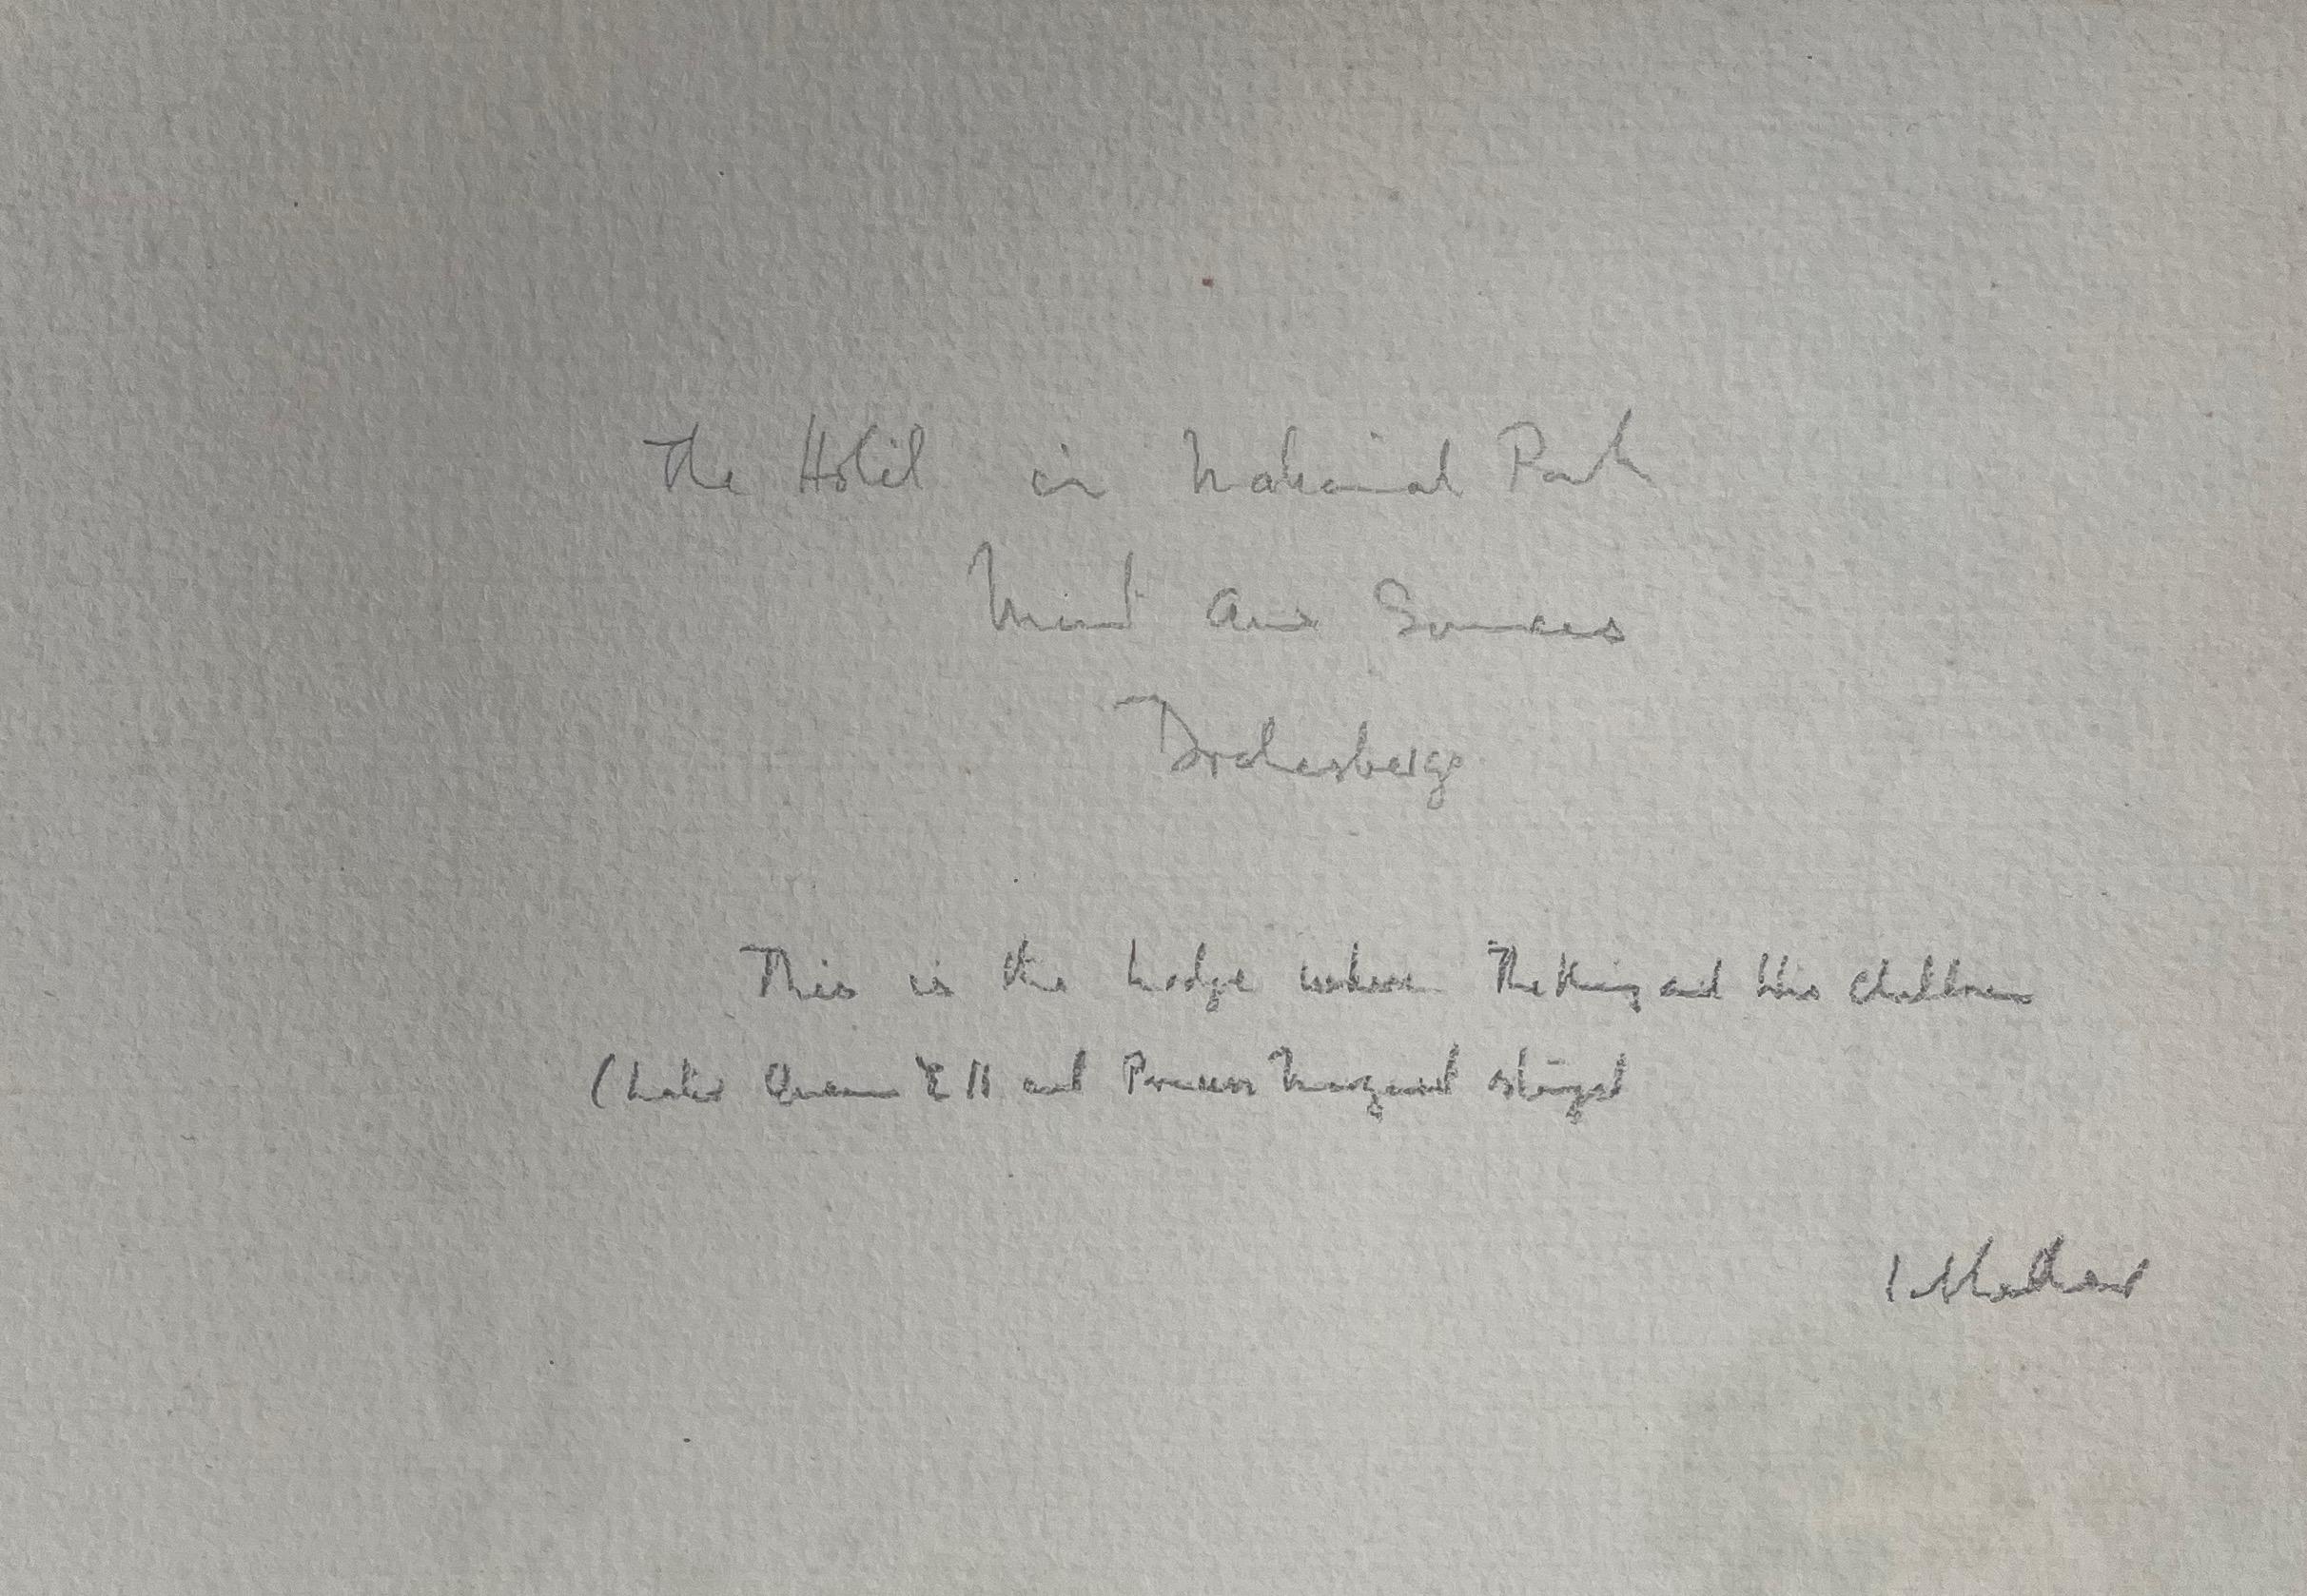 The Hotel in National Park
Mont Aux Sources
Drakesberg
This is the Lodge where The King and His Children
(Later Queen E II and Princess Margaret stayed